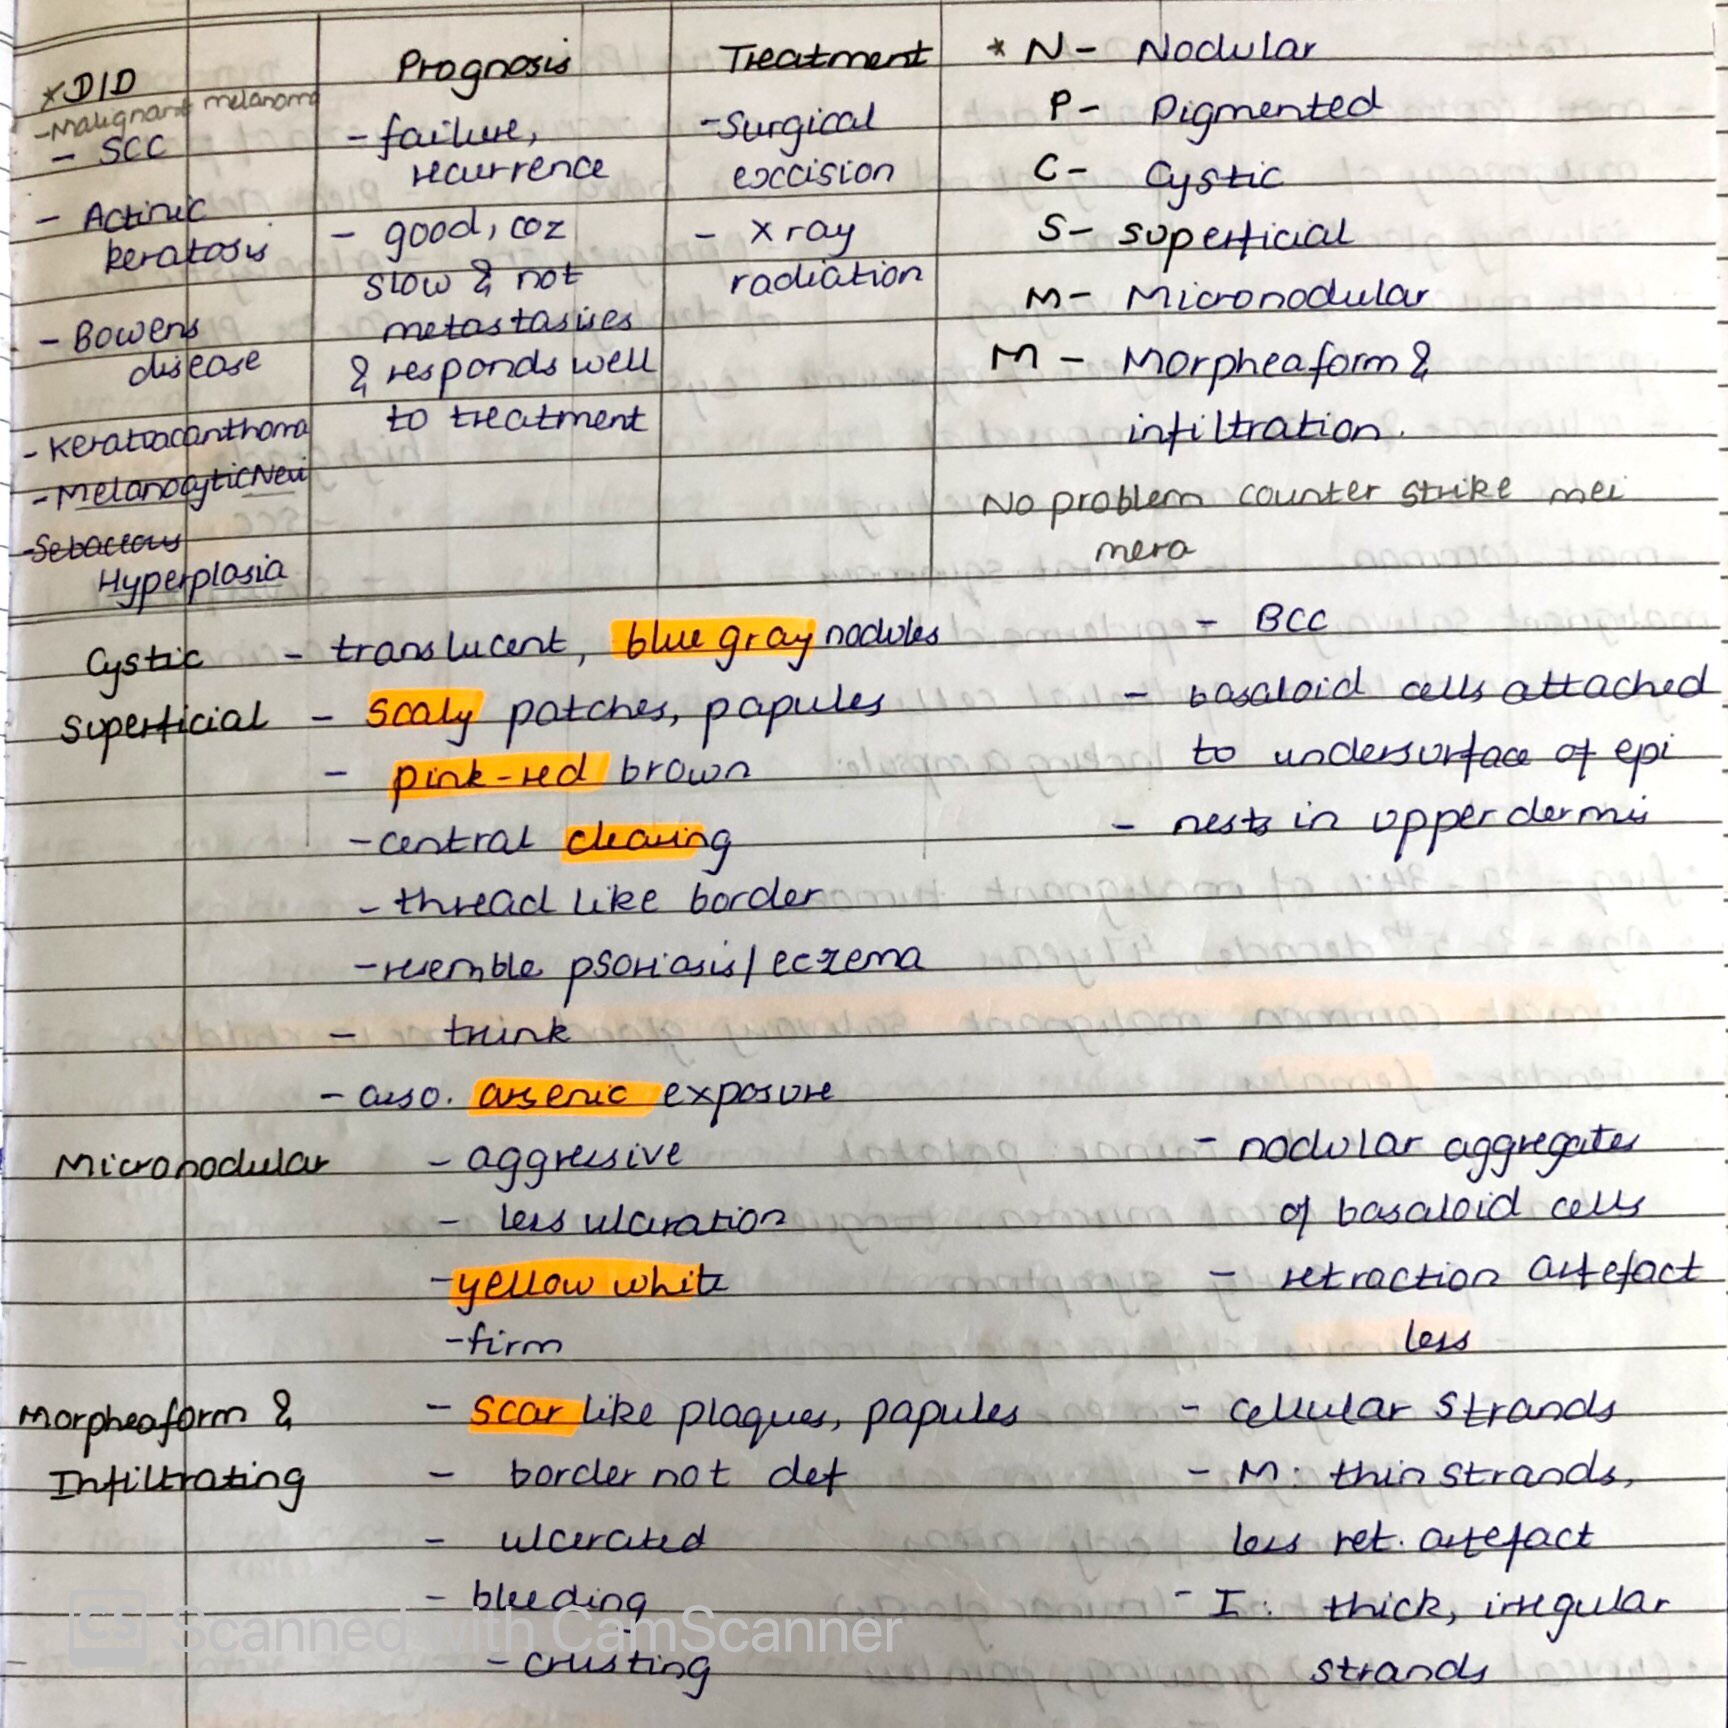 *D/D
-Malignant melanoma
- SCC
- Actinic
keratosis
- Bowens
disease
- Keratoacanthoma
- Melanocytic Nevi
-Sebaceous
Hyperplasia
Prognosis
- failure,
recurrence
- good, coz
slow & not
metastasises
& responds well
to treatment
Treatment
-Surgical
excision
- X ray
radiation
* N- Nodular
P- Pigmented
C- Cystic
S- superficial
M- Micronodular
M - Morpheaform &
infiltration.
No problem counter strike mei
mera
Cystic - translucent, blue gray nodules - BCC
superficial - scaly patches, papules - basaloid cells attached
- pink-red brown to undersurface of epi
-central clearing - nests in upper dermis
- thread like border
-resemble psoriasis/eczema
- trunk
- also. arsenic exposure
Micronodular - aggressive - nodular aggregates
- less ulceration of basaloid cells
-yellow white - retraction artefact
-firm less
Morpheaform & - scar like plaques, papules - cellular strands
Infiltrating - border not def - M: thin strands,
- ulcerated less ret. artefact
- bleeding - I: thick, irregular
- crusting strands
CS Scanned with CamScanner